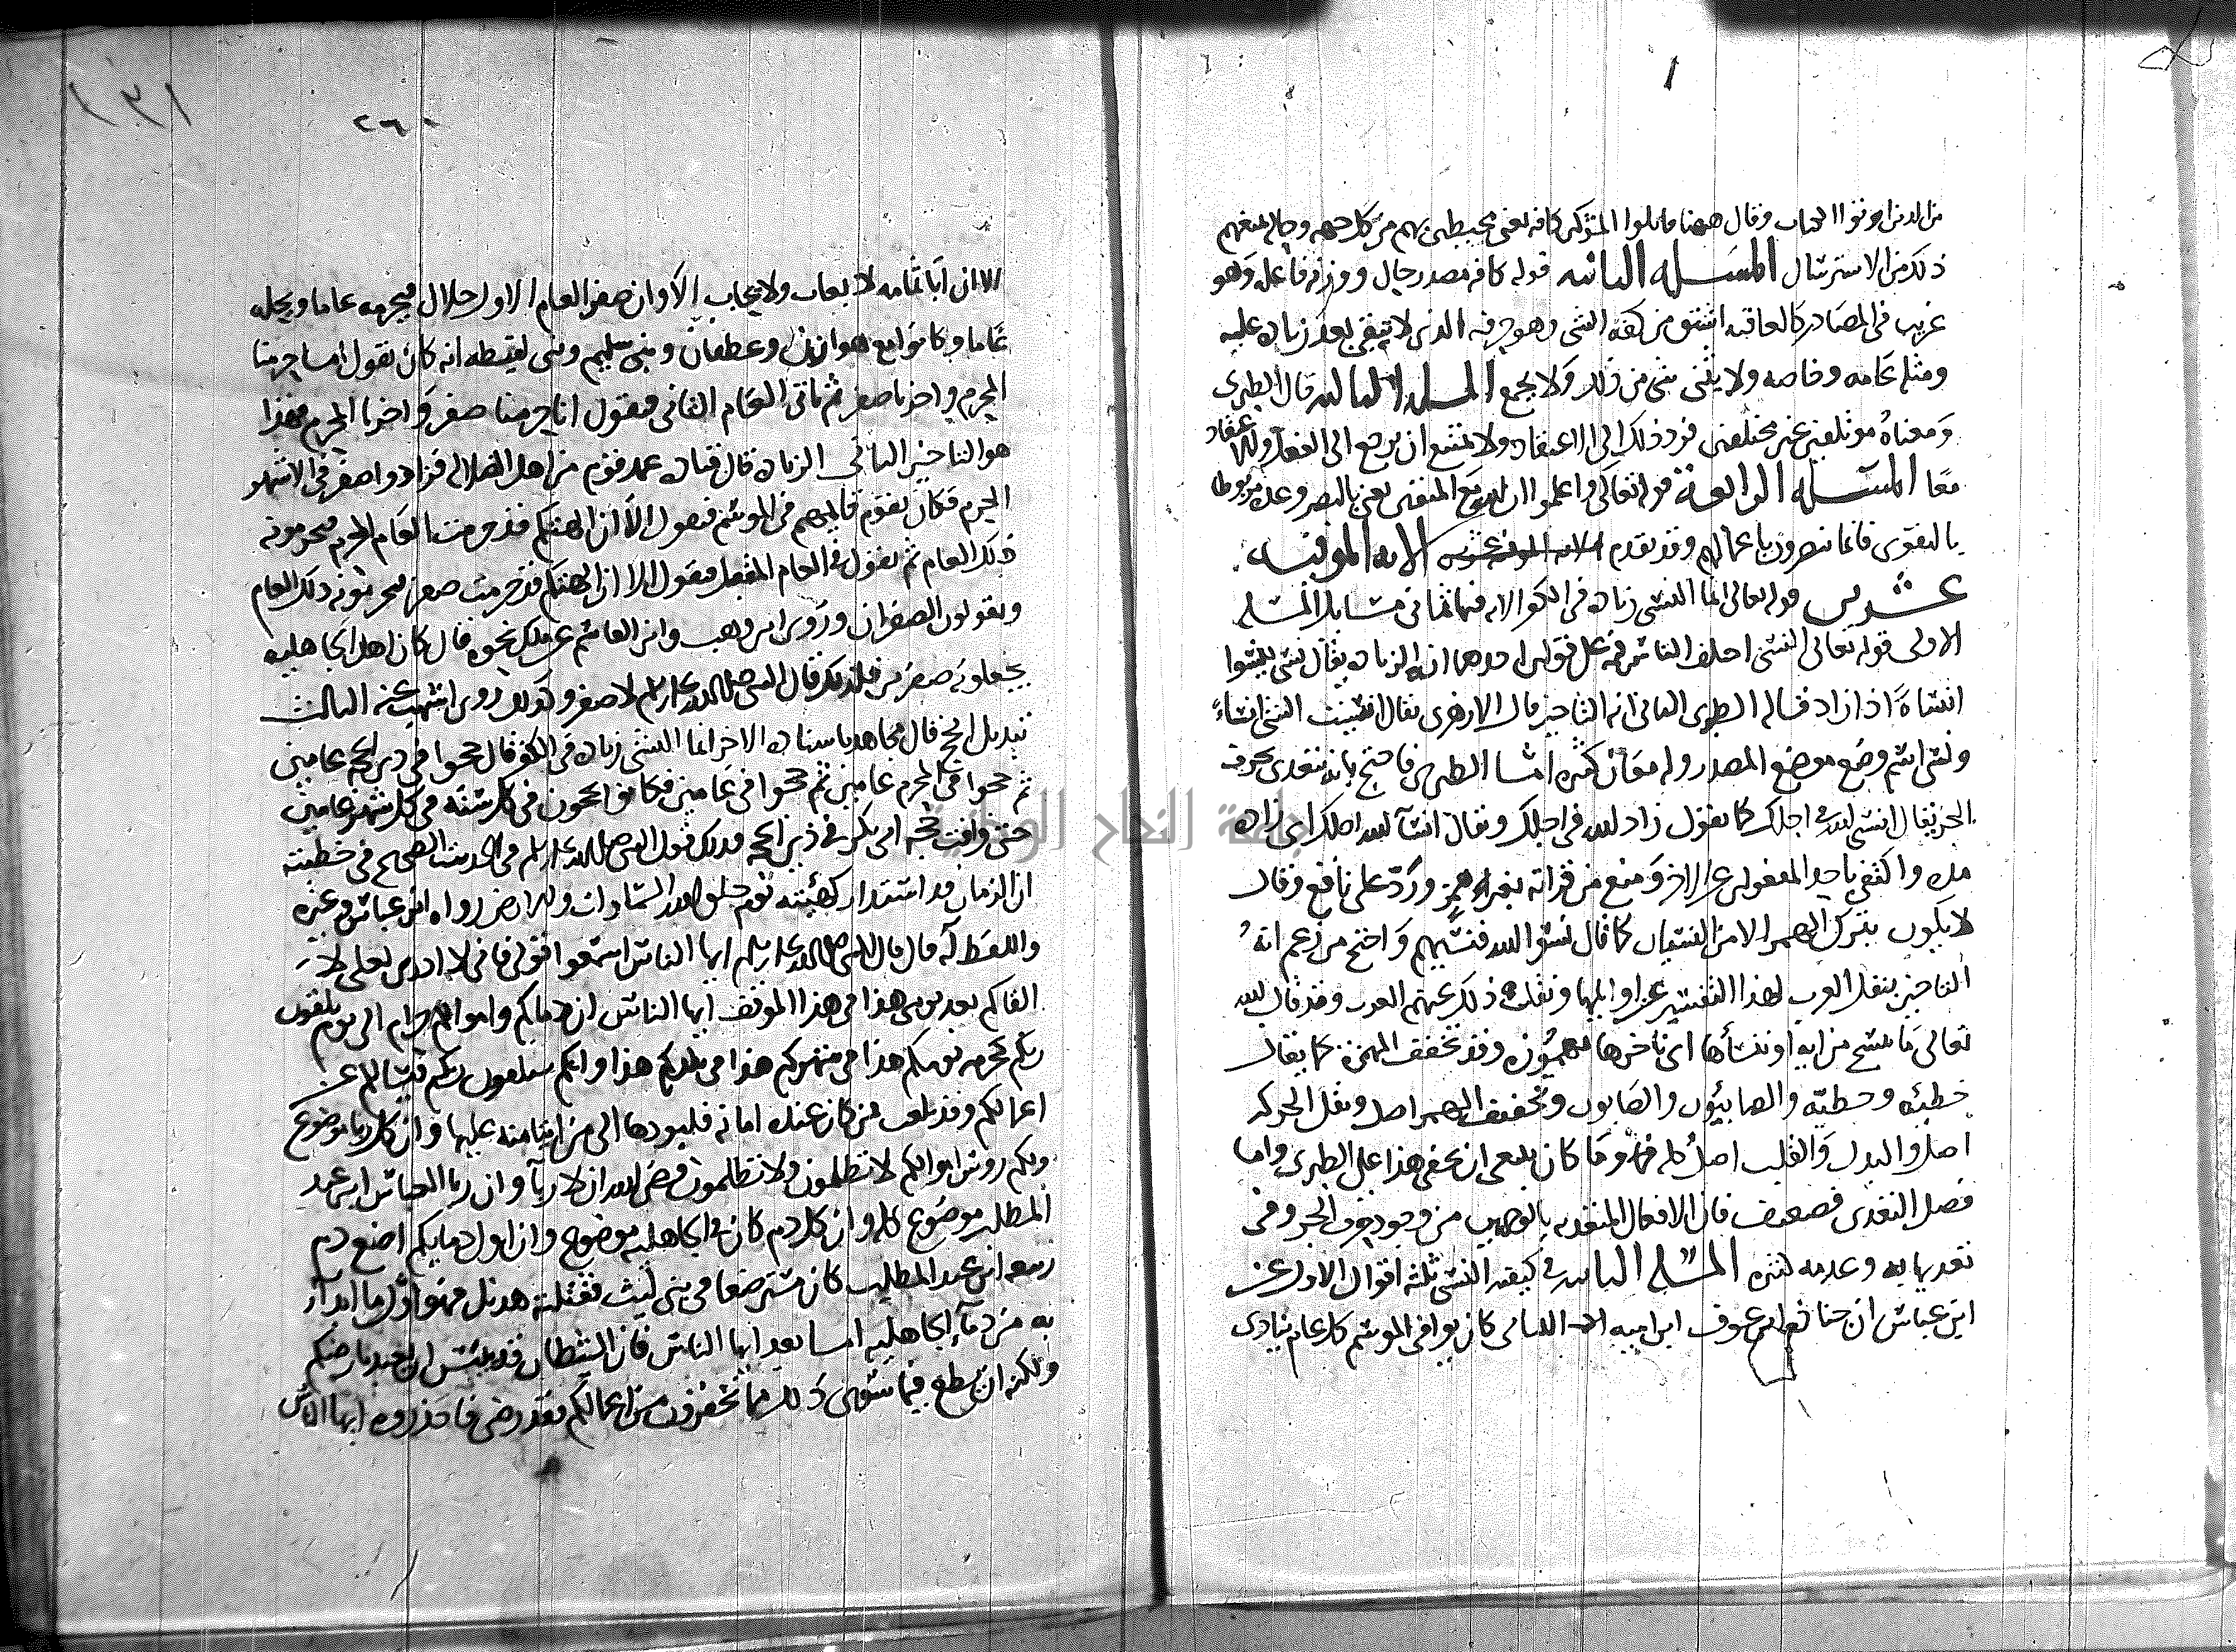 ١
من الذين اوتوا الكتاب وقال ههنا قاتلوا المشركين كافة يعني محيطين بهم من كل جهة وحالة يمنعهم
ذلك من الاسترسال المسله الثانيه قوله كافة مصدر حال ووزنه فاعلة وهو
غريب في المصادر كالعاقبة اشتق من كفة الشي وهو حرفه الذي لا يبقى بعده زيادة عليه
ومثله عامة وخاصة ولا يثنى شي من ذلك ولا يجمع المسله الثالثه قال الطبري
ومعناه مؤتلفين غير مختلفين فرد ذلك الى الاعتقاد ولا يمتنع ان يرجع الى الفعل والاعتقاد
معا المسله الرابعة قوله تعالى واعلموا ان الله مع المتقين يعني بالنصر وعدة مربوطا
بالتقوى فانما تنصرون باعمالكم وقد تقدم الايه الموفيه
عشرين قوله تعالى انما النسي زيادة في الكفر الايه فيها ثماني مسايل المسله
الاولى قوله تعالى النسي اختلف الناس فيه على قولين احدهما انه الزيادة يقال نسي ينسوا
انساة اذا زاد قاله الطبري الثاني انه التاخير قال الازهري يقال انسيت الشي انساءً
ونسي اسم وضع موضع المصدر وله معان كثيرة اما الطبري فاحتج بانه يتعدى بحرف
الجر يقال انسى الله في اجلك كما يقول زاد الله في اجلك ويقال انسا الله اجلك اي زاده
مدة واكتفى باحد المفعولين عن الاخر ومنع من قراته بغير همز ورد على نافع وقال
لا يكون بترك الهمز الا من النسيان كما قال نسوا الله فنسيهم واحتج من زعم انه
التاخير بنقل العرب لهذا التفسير عن اوايلها ونقلة ذلك عنهم العرب وقد قال الله
تعالى ما ننسخ من اية او ننسأها اي نؤخرها مهموزة وقد تخفف الهمزة كما يقال
خطيئة وخطية والصابئون والصابون وتخفيف الهمز اصل ونقل الحركة
اصل والبدل والقلب اصل كله وما كان ينبغي ان يخفى هذا على الطبري واما
فصل التعدي فضعيف فان الافعال المتعدية بالوجهين من وجود حرف الجر وفي
تعديها به وعدمه كثيرة المسله الثانيه في كيفية النسي ثلثة اقوال الاول عن
ابن عباس ان جنادة بن عوف ابن امية الكناني كان يوافي الموسم كل عام ينادي
٢٦٠
١٣١
الا ان ابا ثمامة لا يعاب ولا يجاب الا وان صفر العام الاول حلال فيحرمه عاما ويحله
عاما وكانوا مع هوازن وغطفان وبني سليم وفي لفيظه انه كان يقول انا حرمنا
المحرم واخرنا صفر ثم ياتي العام الثاني فيقول انا حرمنا صفر واخرنا المحرم فهذا
هو التاخير الثاني الزيادة قال قتادة عمد قوم من اهل الضلالة فزادوا صفر في الاشهر
الحرم فكان يقوم قايمهم في الموسم فيقول الا ان الهتكم قد حرمت العام المحرم فيحرمونه
ذلك العام ثم يقول في العام المقبل فيقول الا ان الهتكم قد حرمت صفر فيحرمونه ذلك العام
ويقولون الصفران وروى ابن وهب وابن القاسم عن ملك نحوه قال كان اهل الجاهلية
يجعلونه صفرين فلذلك قال النبي صلى الله عليه وسلم لا صفر وكذلك روى اشهب عنه الثالث
تبديل الحج قال مجاهد باسناده الاخر انما النسي زيادة في الكفر قال حجوا في ذي الحجة عامين
ثم حجوا في المحرم عامين ثم حجوا في عامين فكانوا يحجون في كل سنة في كل شهر عامين
حتى وافت حجة ابي بكر في ذي الحجة فذلك قول النبي صلى الله عليه وسلم في الحديث الصحيح في خطبته
ان الزمان قد استدار كهيئته يوم خلق الله السماوات والارض رواه ابن عباس وغيره
واللفظ له قال قال النبي صلى الله عليه وسلم ايها الناس اسمعوا قولي فاني لا ادري لعلي لا
القاكم بعد يومي هذا في هذا الموقف ايها الناس ان دماكم واموالكم حرام الى يوم تلقون
ربكم كحرمة يومكم هذا في شهركم هذا في بلدكم هذا وانكم ستلقون ربكم فيسالكم عن
اعمالكم وقد بلغت فمن كان عنده امانة فليودها الى من ايتمنه عليها وان كل ربا موضوع
ولكم روس اموالكم لا تظلمون ولا تظلمون قضى الله ان لا ربا وان ربا العباس ابن عبد
المطلب موضوع كله وان كل دم كان في الجاهلية موضوع وان اول دمايكم اضع دم
ربيعة ابن عبد المطلب كان مسترضعا في بني ليث فقتلته هذيل فهو اول ما ابدأ
به من دماء الجاهلية اما بعد ايها الناس فان الشيطان قد يئس ان يعبد بارضكم
ولكنه ان يطع فيما سوى ذلك مما تحقرون من اعمالكم فقد رضي فاحذروه ايها الناس